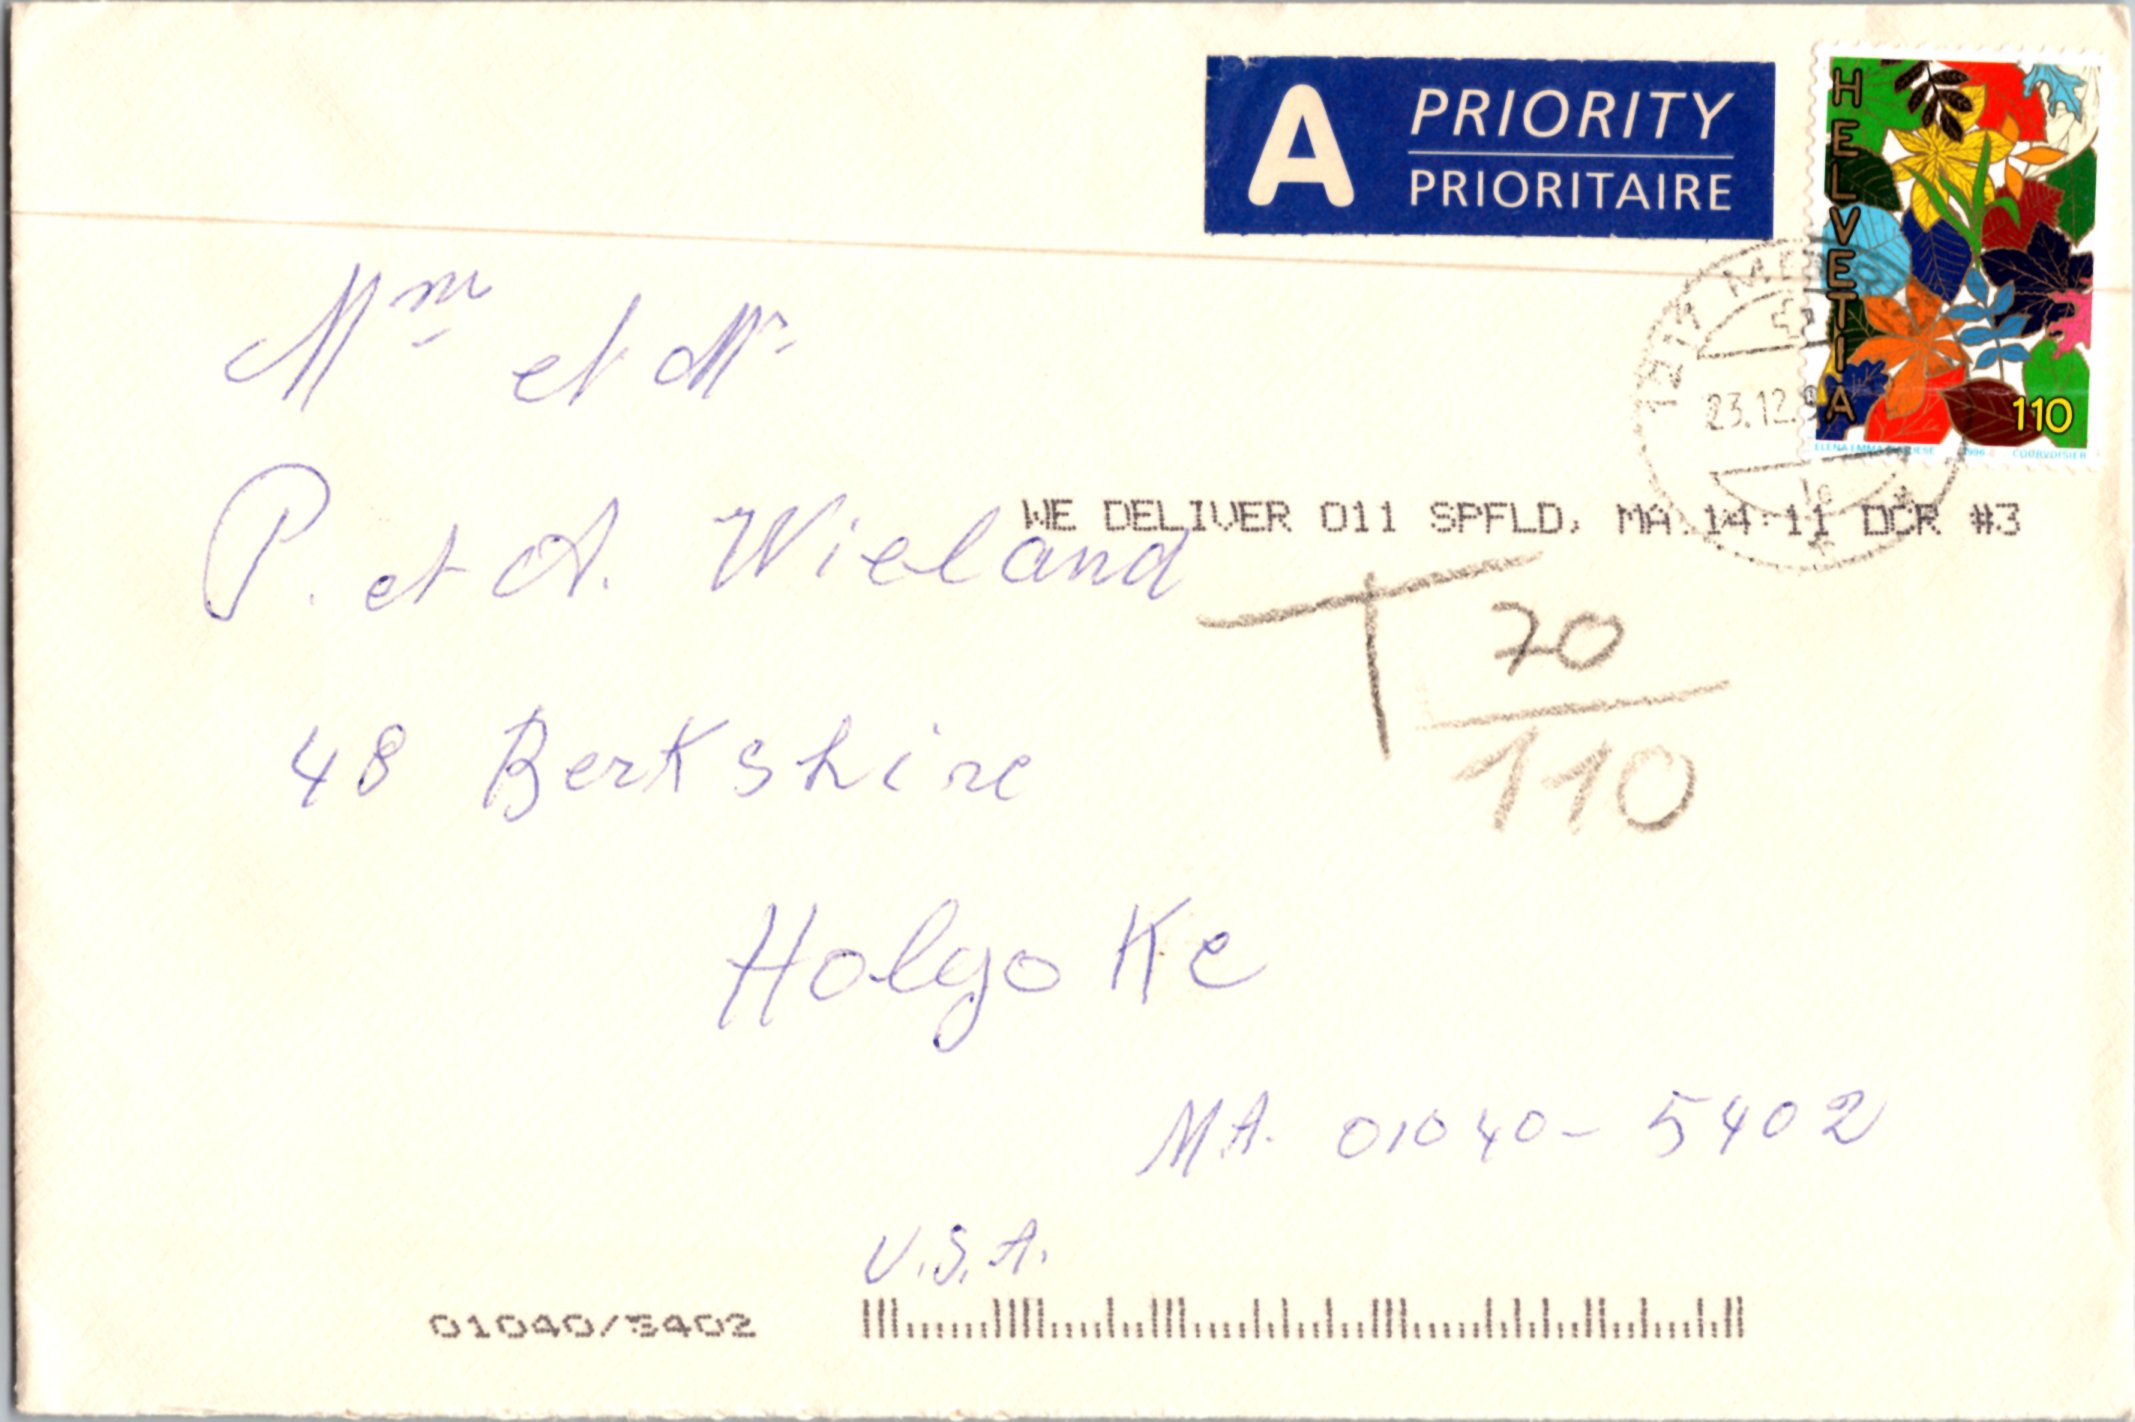 A PRIORITY
PRIORITAIRE
HELVETIA
110
1996 COURVOISIER
1217
23.12.9
Mme et Mr.
P. et A. Wieland
WE DELIVER 011 SPFLD, MA 14-11 DCR #3
T 70
110
48 Berkshire
Holyoke
MA. 01040-5402
U.S.A.
01040/5402